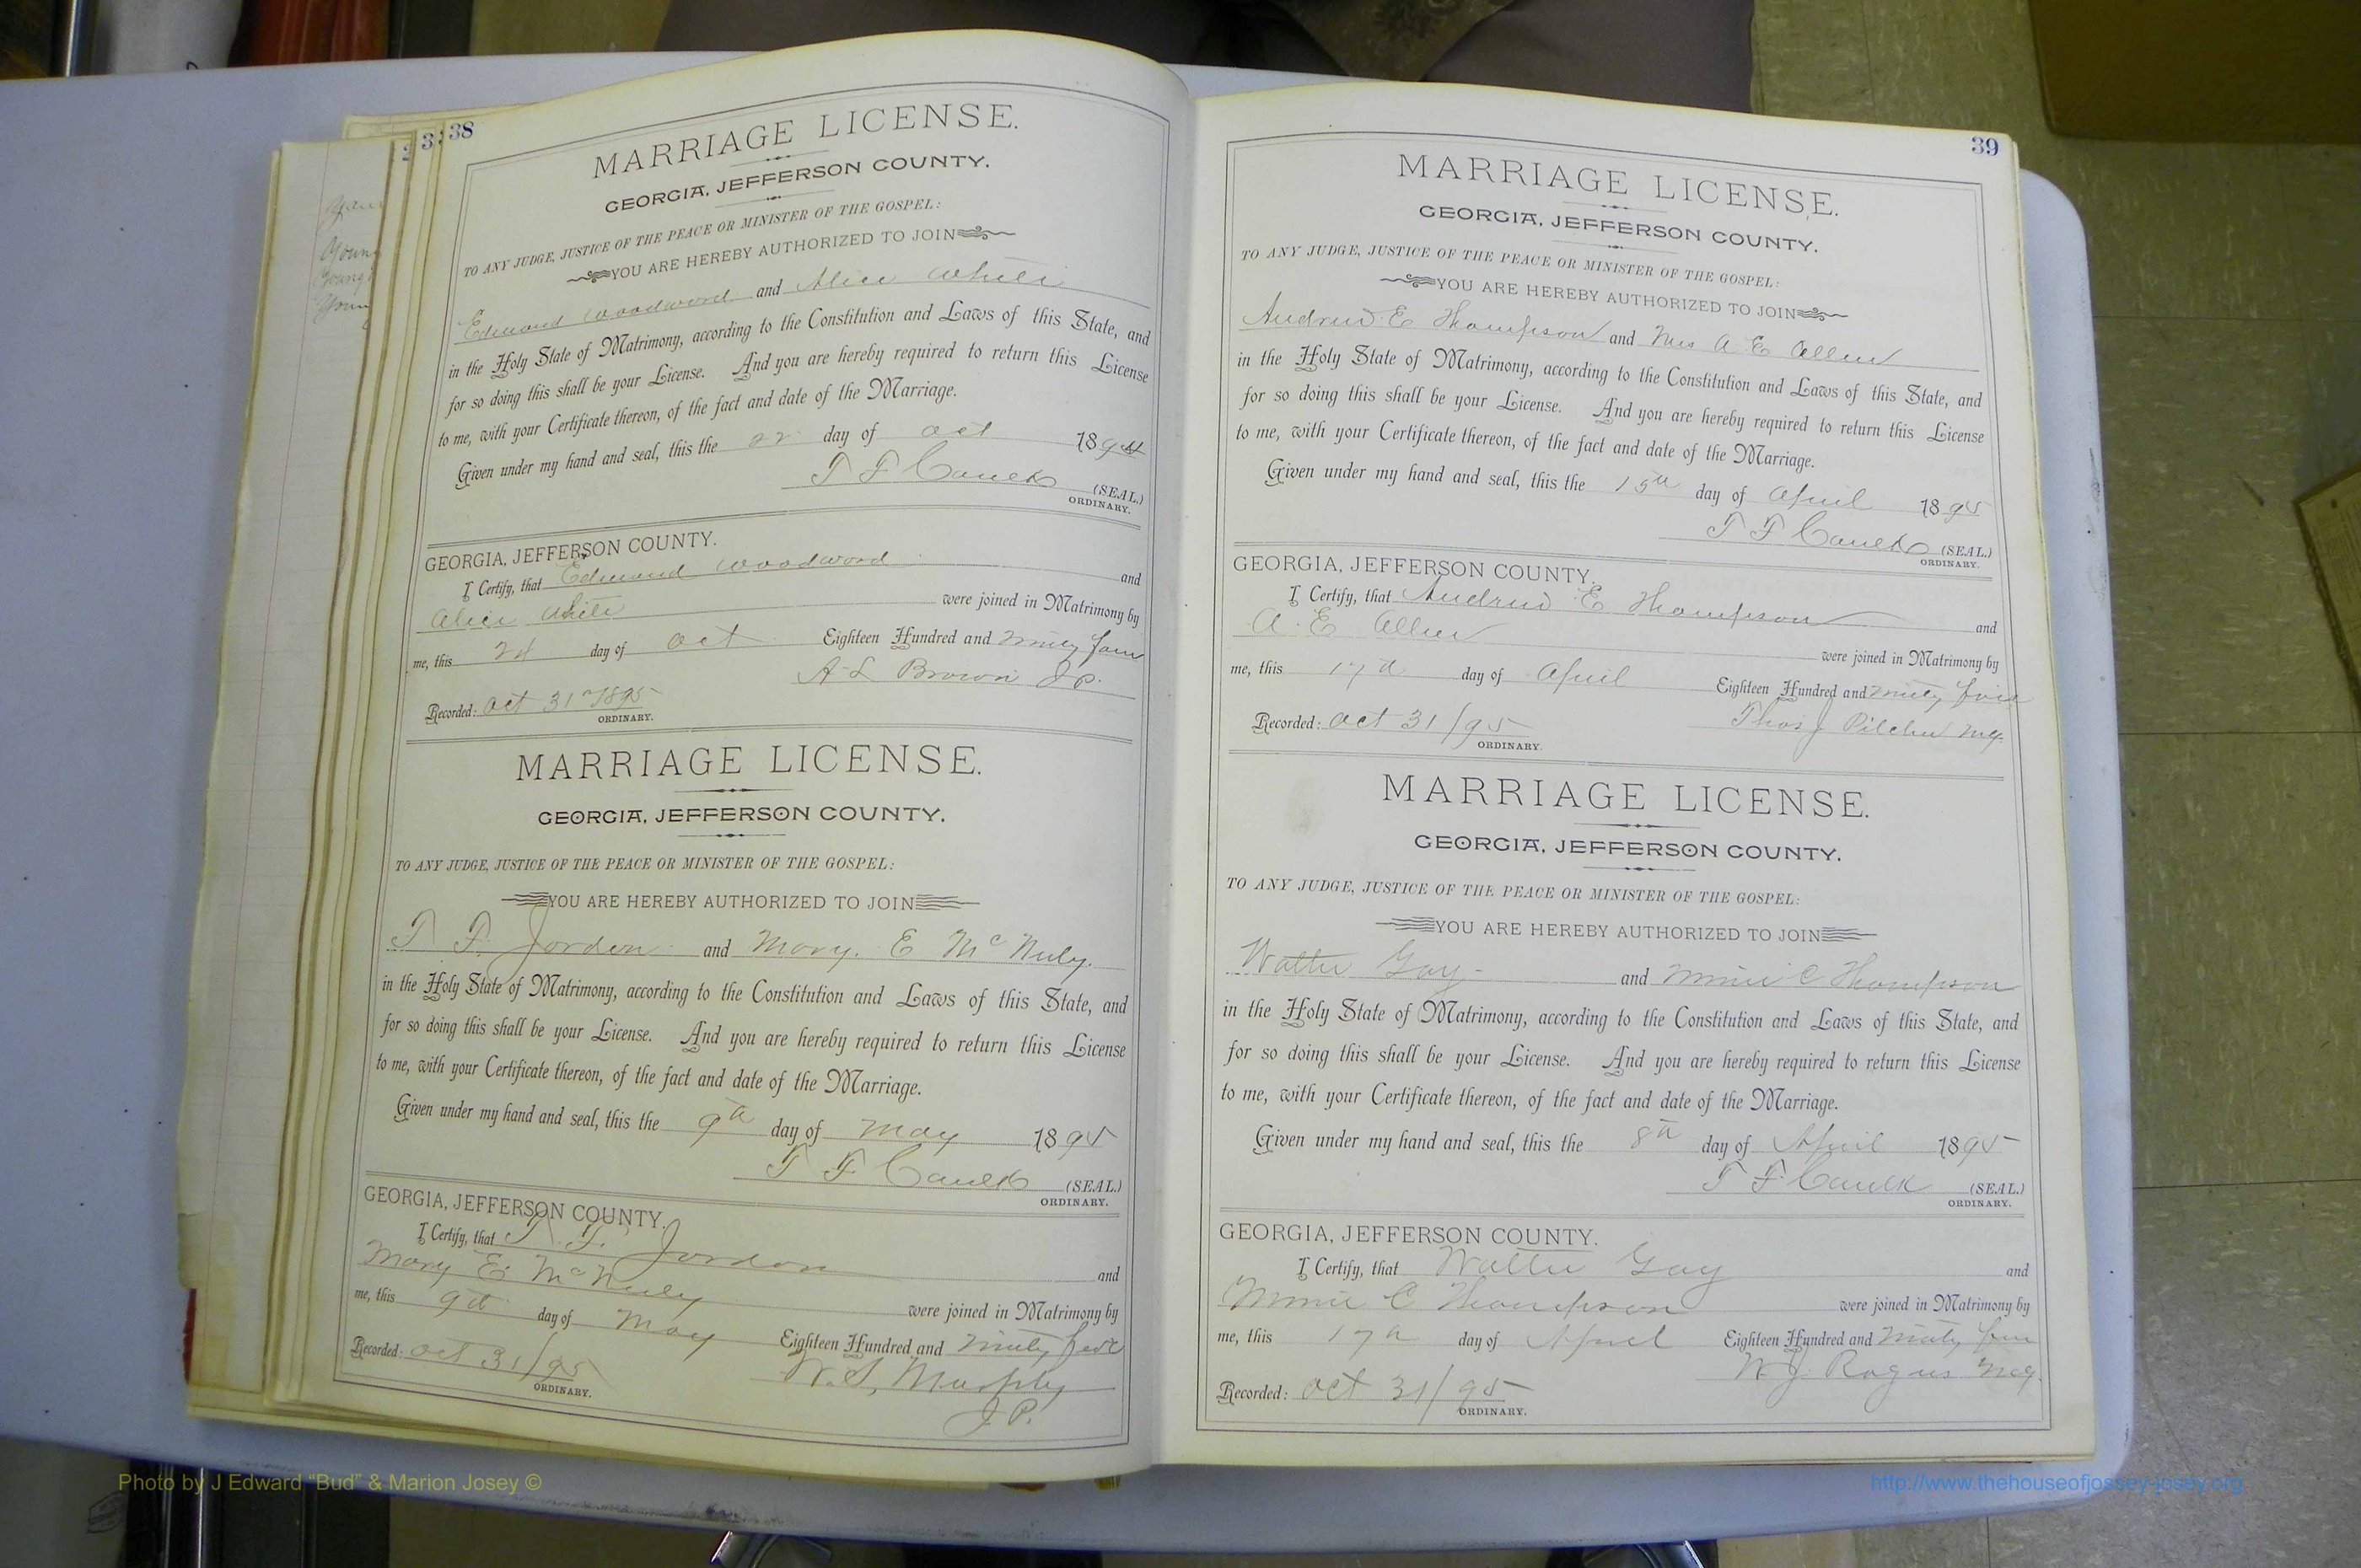 38
MARRIAGE LICENSE.
GEORGIA, JEFFERSON COUNTY.
TO ANY JUDGE, JUSTICE OF THE PEACE OR MINISTER OF THE GOSPEL:
YOU ARE HEREBY AUTHORIZED TO JOIN
Edmund Woodword and Alice White
in the Holy State of Matrimony, according to the Constitution and Laws of this State, and
for so doing this shall be your License. And you are hereby required to return this License
to me, with your Certificate thereon, of the fact and date of the Marriage.
Given under my hand and seal, this the 22 day of Oct 1894
T F Caulk (SEAL.)
ORDINARY.
GEORGIA, JEFFERSON COUNTY.
I Certify, that Edmund Woodword and
Alice White were joined in Matrimony by
me, this day of Oct Eighteen Hundred and Ninety four
A L Brown J.P.
Recorded: Oct 31 1895
ORDINARY.
MARRIAGE LICENSE.
GEORGIA, JEFFERSON COUNTY.
TO ANY JUDGE, JUSTICE OF THE PEACE OR MINISTER OF THE GOSPEL:
YOU ARE HEREBY AUTHORIZED TO JOIN
T. F. Jordon and Mary. E McNuly.
in the Holy State of Matrimony, according to the Constitution and Laws of this State, and
for so doing this shall be your License. And you are hereby required to return this License
to me, with your Certificate thereon, of the fact and date of the Marriage.
Given under my hand and seal, this the 9th day of May 1895
T F Caulk (SEAL.)
ORDINARY.
GEORGIA, JEFFERSON COUNTY.
I Certify, that T. F. Jordon and
Mary E. McNuly were joined in Matrimony by
me, this 9th day of May Eighteen Hundred and Ninety five
W. S. Murphy
J.P.
Recorded: Oct 31/95
ORDINARY.
39
MARRIAGE LICENSE.
GEORGIA, JEFFERSON COUNTY.
TO ANY JUDGE, JUSTICE OF THE PEACE OR MINISTER OF THE GOSPEL:
YOU ARE HEREBY AUTHORIZED TO JOIN
Andrew E Thompson and Mrs A. E Allen
in the Holy State of Matrimony, according to the Constitution and Laws of this State, and
for so doing this shall be your License. And you are hereby required to return this License
to me, with your Certificate thereon, of the fact and date of the Marriage.
Given under my hand and seal, this the 15th day of April 1895
T F Caulk (SEAL.)
ORDINARY.
GEORGIA, JEFFERSON COUNTY.
I Certify, that Andrew E Thompson and
A. E Allen were joined in Matrimony by
me, this 17th day of April Eighteen Hundred and Ninety five
Thos J Pilcher M.G.
Recorded: Oct 31/95
ORDINARY.
MARRIAGE LICENSE.
GEORGIA, JEFFERSON COUNTY.
TO ANY JUDGE, JUSTICE OF THE PEACE OR MINISTER OF THE GOSPEL:
YOU ARE HEREBY AUTHORIZED TO JOIN
Walter Gay and Minnie C Thompson
in the Holy State of Matrimony, according to the Constitution and Laws of this State, and
for so doing this shall be your License. And you are hereby required to return this License
to me, with your Certificate thereon, of the fact and date of the Marriage.
Given under my hand and seal, this the 8th day of April 1895
T F Caulk (SEAL.)
ORDINARY.
GEORGIA, JEFFERSON COUNTY.
I Certify, that Walter Gay and
Minnie C Thompson were joined in Matrimony by
me, this 17th day of April Eighteen Hundred and Ninety
W. J. Rogers M.G.
Recorded: Oct 31/95
ORDINARY.
Photo by J Edward “Bud” & Marion Josey ©
http://www.thehouseofjossey-josey.org